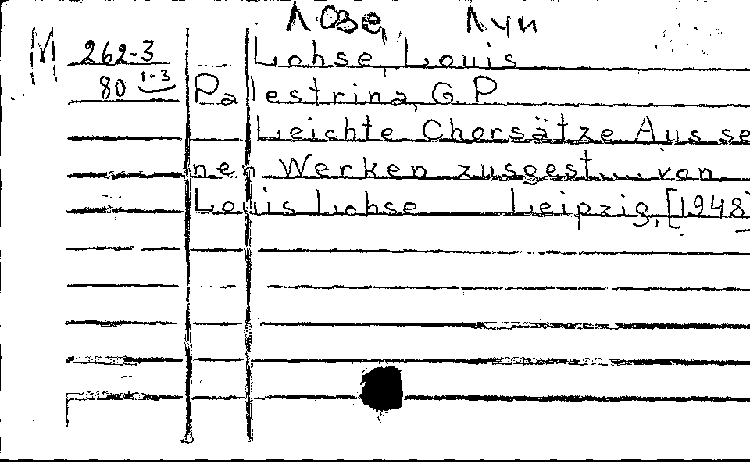 Лозе, Луи
М 262-3 Lohse, Louis
80 1-3 Palestrina, G P
Leichte Chorsätze Aus se
nen Werken zusgest... von
Louis Lohse Leipzig, [1948]